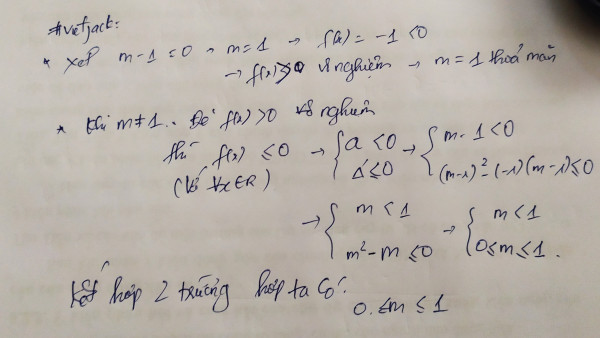 #vietjack:
* Xét m-1=0 → m=1 → f(x) = -1 <0
→ f(x)>0 vô nghiệm → m=1 thoả mãn
* Khi m≠1.. Để f(x) >0 vô nghiệm
thì f(x) ≤0 → { a <0 → { m-1<0
(Với ∀x∈R) Δ'≤0 (m-1)²-(-1)(m-1)≤0
→ { m<1 → { m<1
m²-m≤0 0≤m≤1.
Kết hợp 2 trường hợp ta có:
0≤m≤1